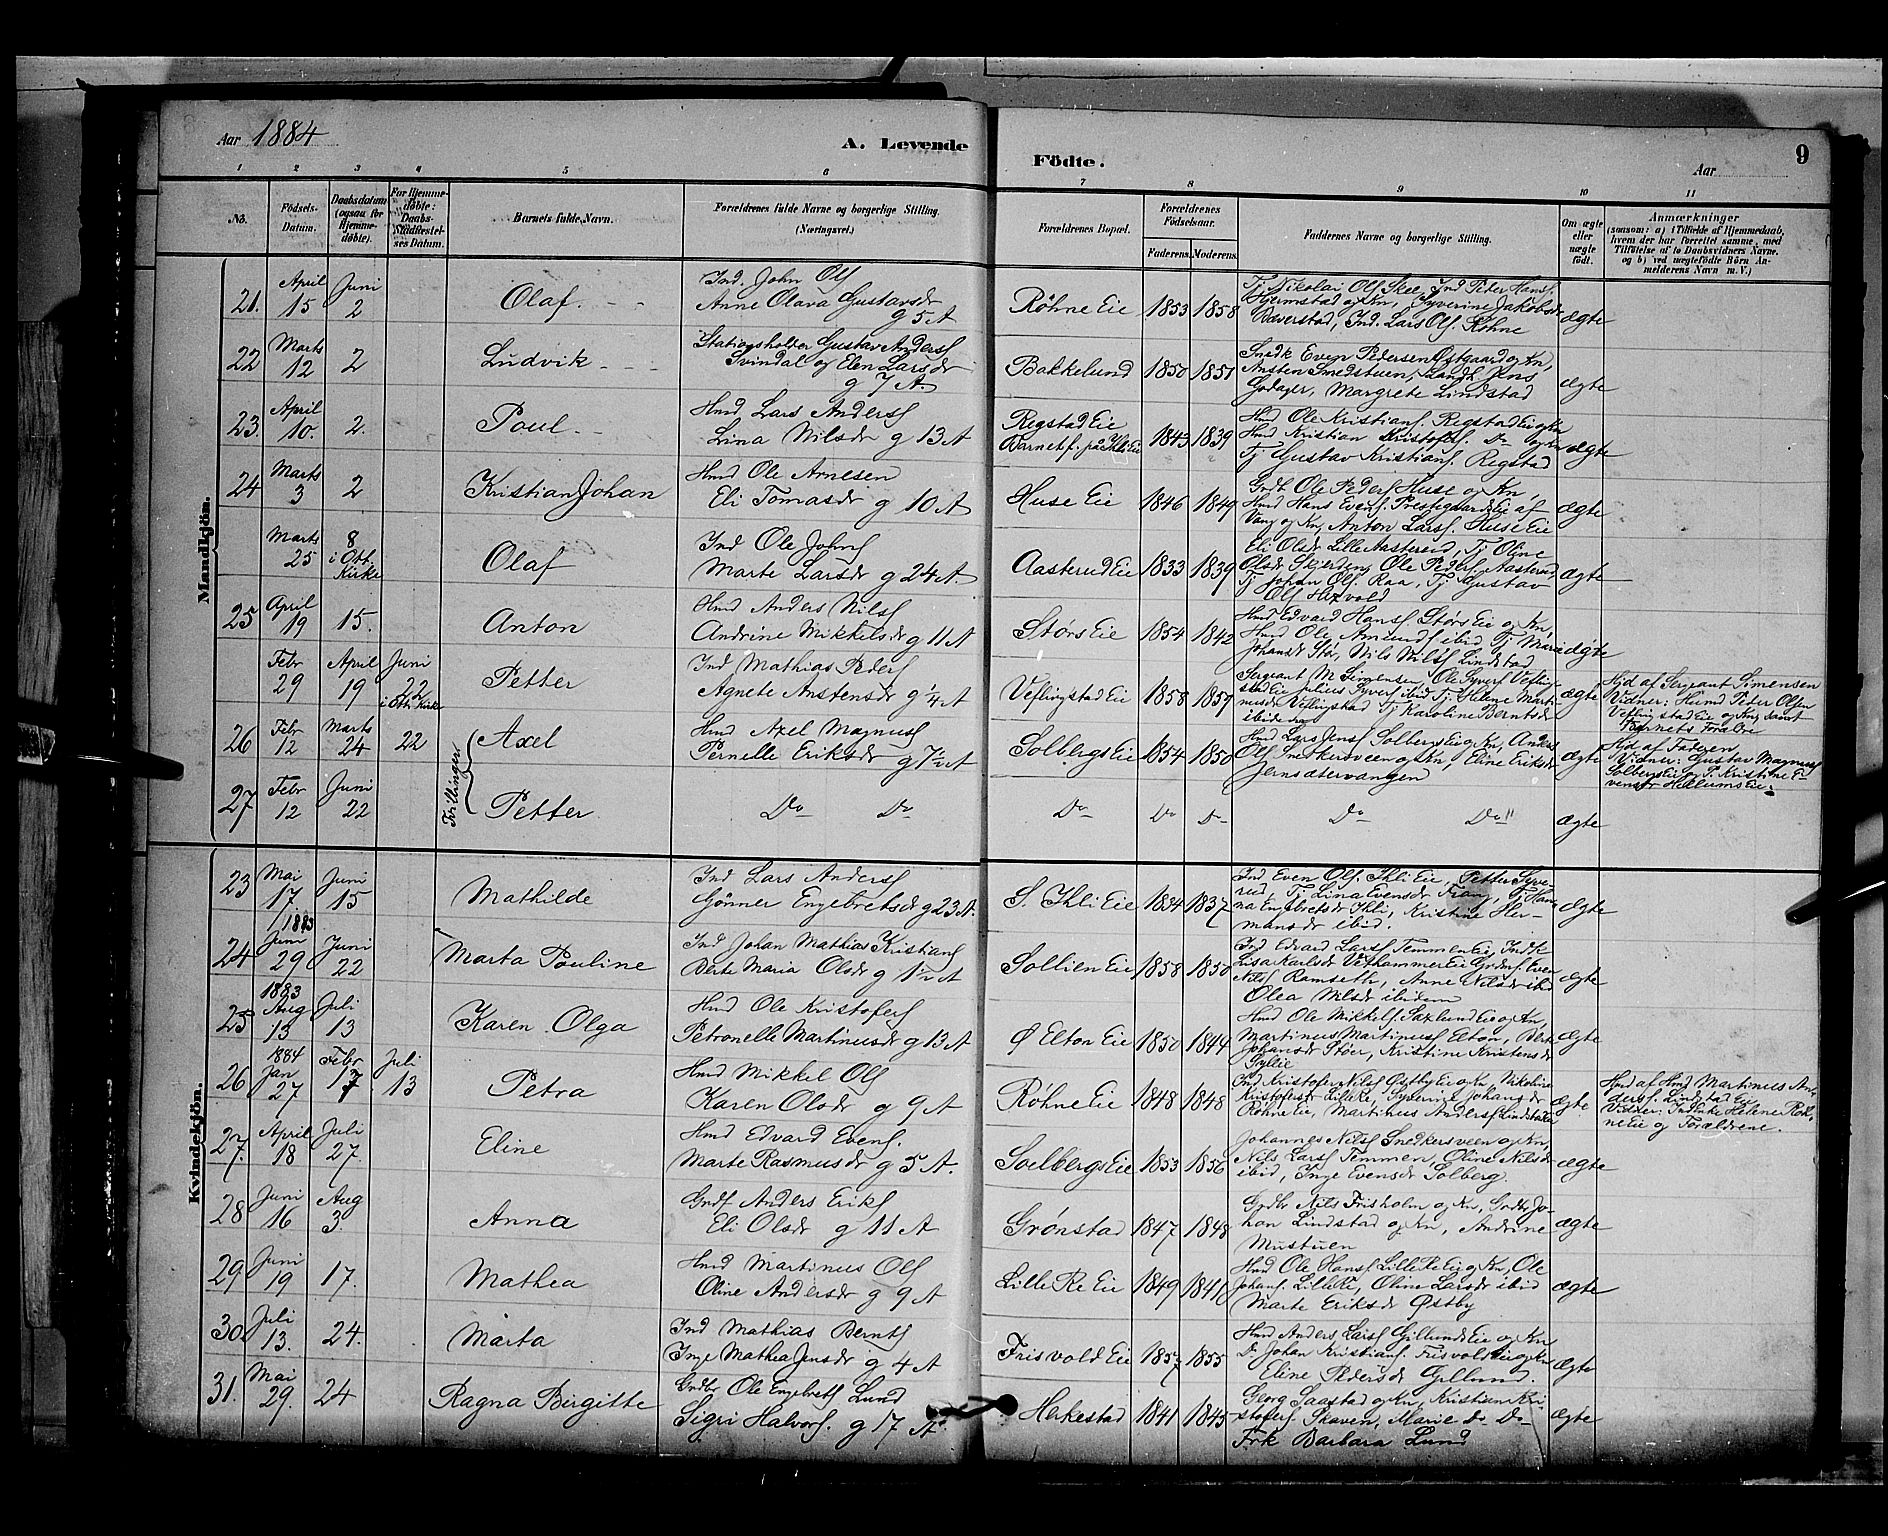 Aar 1884
A. Levende
Födte.
Aar
9
1 2 3 4 5 6 7 8 9 10 11
No.
Födsels-
Datum.
Daabsdatum
(ogsaa for
Hjemme-
döbte).
For Hjemme-
döbte:
Daabs-
Stadfæstel-
ses Datum.
Barnets fulde Navn.
Forældrenes fulde Navne og borgerlige Stilling.
(Næringsvei.)
Forældrenes Bopæl.
Forældrenes
Födselsaar.
Faderens. Moderens.
Faddernes Navne og borgerlige Stilling.
Om ægte
eller
uægte
födt.
Anmærkninger
(saasom: a) i Tilfælde af Hjemmedaab,
hvem der har forrettet samme, med
Tilföielse af to Daabsvidners Navne,
og b) ved uægtefödte Börn An-
melderens Navn m. V.)
Mandkjön.
21. April 15 Juni 2 Olaf
Ind. John Ols
Anne Olava Gustavsdr
g 5 A
Røhne Eie 1853 1858
Tj Nikolai Ols Skee, Ind Peter Hans
Hjemstad og Kn, Syverine Jakobsdr
Baverstad, Ind. Lars Ols. Røhne
ægte
22 Marts 12 2 Ludvik
Stationsholder Gustav Anders
Svindal og Elen Larsdr
g 7 A.
Bakkelund 1850 1851
Snedk Even Pedersen Østgaard og Kn,
Ansten Smedstuen, Landh Jens
Godager, Margrete Lindstad
ægte
23. April 10. 2. Poul
Hmd Lars Anders
Lina Nilsdr g 13 A
Regstad Eie
Barnet f. på Ihle Eie
1843 1839
Hmd Ole Kristians. Regstad Eie og Kn
Hmd Kristian Kristofers. Do og Kn
Tj Gustav Kristians. Regstad
ægte
24 Marts 3 2 Kristian Johan
Hmd Ole Arnesen
Eli Tomasdr g 10 A
Huse Eie 1846 1849
Grdb Ole Peders Huse og Kn,
Hmd Hans Evens. Prestegaards Eie af
Vang og Kn, Anton Lars. Huse Eie
ægte
Marts 25 8 i Ott. Kirke Olaf
Ind Ole Johns
Marte Larsdr g 24 A.
Aasterud Eie 1833 1839
Eli Olsdr Lille Aasterud, Tj Oline
Olsdr Skjerden, Ole Peders Aasterud,
Tj Johan Ols. Raa, Tj Gustav
Ols Hexvold
ægte
25 April 19 15. Anton
Hmd Anders Nils
Andrine Mikkelsdr g 11 A
Størs Eie 1854 1842
Hmd Edvard Hans Størs Eie og Kn,
Hmd Ole Amunds ibid Tj Marie
Johansdr Stør, Nils Nils Lindstad
ægte
Febr 29 April 19 Juni 22 i Ott. Kirke Petter
Ind Mathias Peders
Agnete Anstensdr g 1/4 A
Veflingstad Eie 1858 1857
Sergeant M Simensen, Ole Syvers Vefling-
stad Eie Julius Syvers ibid Tj Helene Mart-
insdr Veflingstad Tj Karoline Berntsdr
ibidem
ægte
Hjd af Sergeant Simensen
Vidner: Husmd Peter Olsen
Veflingstad Eie og Kn, samt
Barnets Forældre
26 Febr 12 Marts 24 22 Axel
Tvillinger
Hmd Axel Magnus
Pernelle Eriksdr g 7 1/2 A
Solbergs Eie 1854 1850
Hmd Lars Jens Solbergs Eie og Kn, Anders
Ols Snedkersveen og Kn, Eline Eriksdr
Jernsætervangen
ægte
Hjd af Faderen
Vidner: Gustav Magnus
Solbergs Eie og P. Kristine E-
vensdr Hellums Eie.
27 Febr 12 Juni 22 Petter
Do Do
Do Do Do Do Do
ægte
Kvindekjön.
23 Mai 17. Juni 15 Mathilde
Ind Lars Anders
Gønner Engebretsdr g 23 A.
S. Ihli Eie 1834 1837
Ind Even Ols. Ihli Eie, Petter Syve-
rud, Tj Lina Evensdr Frang, Tj Han
na Engebretsdr Ihli, Kristine Her-
mansdr ibid.
ægte
24 1883 Juni 29 Juni 22 Marta Pouline
Ind Johan Mathias Kristians
Berte Maria Olsdr g 1 1/2 A
Sollien Eie 1858 1850
Ind Edvard Lars Temmen Eie, Indk
Lisa Karlsdr Vethammer Eie Grdms. Even
Nils Ramseth, Anne Nilsdr ibid
Olea Nilsdr ibidem
ægte
25 1883 Aug 13 Juli 13 Karen Olga
Hmd Ole Kristofers
Petronelle Martinusdr g 13 A
Ø Elton Eie 1850 1844
Hmd Ole Mikkels Saxlund Eie og Kn,
Martinus Martinus Elton, Berte
Johansdr Stoer, Kristine Kristensdr
Gyllie
ægte
26 1884 Jan 27 Febr 17 Juli 13 Petra
Hmd Mikkel Ols
Karen Olsdr g 9 A
Røhne Eie 1848 1848
Ind Kristofer Nils Østby Eie og Kn Nikoline
Kristofersdr Lille Re, Syverine Johansdr
Røhne Eie, Martinus Anders Lindstad Eie
ægte
Hmd af Hmd Martinus An-
ders. Lindstad Eie
Vidner: Indenke Helene Røh-
ne Eie og Forældrene.
27. April 18 Juli 27. Eline
Hmd Edvard Evens.
Marte Rasmusdr g 5 A.
Soelbergs Eie 1853 1856
Johannes Nils Snedkersveen og Kn,
Nils Lars Temmen, Oline Nilsdr
ibid, Inge Evensdr Solberg.
ægte
28 Juni 16 Aug 3. Anna
Grdf Anders Eriks
Eli Olsdr g 11 A
Grønstad 1847 1848
Grdbr Nils Frisholm og Kn, Grdbr Jo-
han Lindstad og Kn, Andrine
Mustuen
ægte
29 Juni 19 17. Mathea
Hmd Martinus Ols
Oline Andersdr g 9 A
Lille Re Eie 1849 1846
Hmd Ole Hans Lille Re Eie og Kn, Ole
Johans. Lille Re, Oline Larsdr ibid
Marte Eriksdr Østby
ægte
30. Juli 13. 24. Marta
Ind Mathias Bernts
Inge Mathea Jensdr g 4 A
Frisvold Eie 1857 1855
Hmd Anders Lars Gillunds Eie og Kn
Do Johan Kristians. Frisvold Eie og Kn
Eline Pedersdr Gillund.
ægte
31. Mai 29. 24 Ragna Birgitte
Grdbr Ole Engebrets Lund
Sigri Halvors. g 17 A
Herkestad 1841 1845
Georg Saastad og Kn, Kristian Kri
stofers. Skaven, Marie Do Do
Frk Barbara Lund
ægte